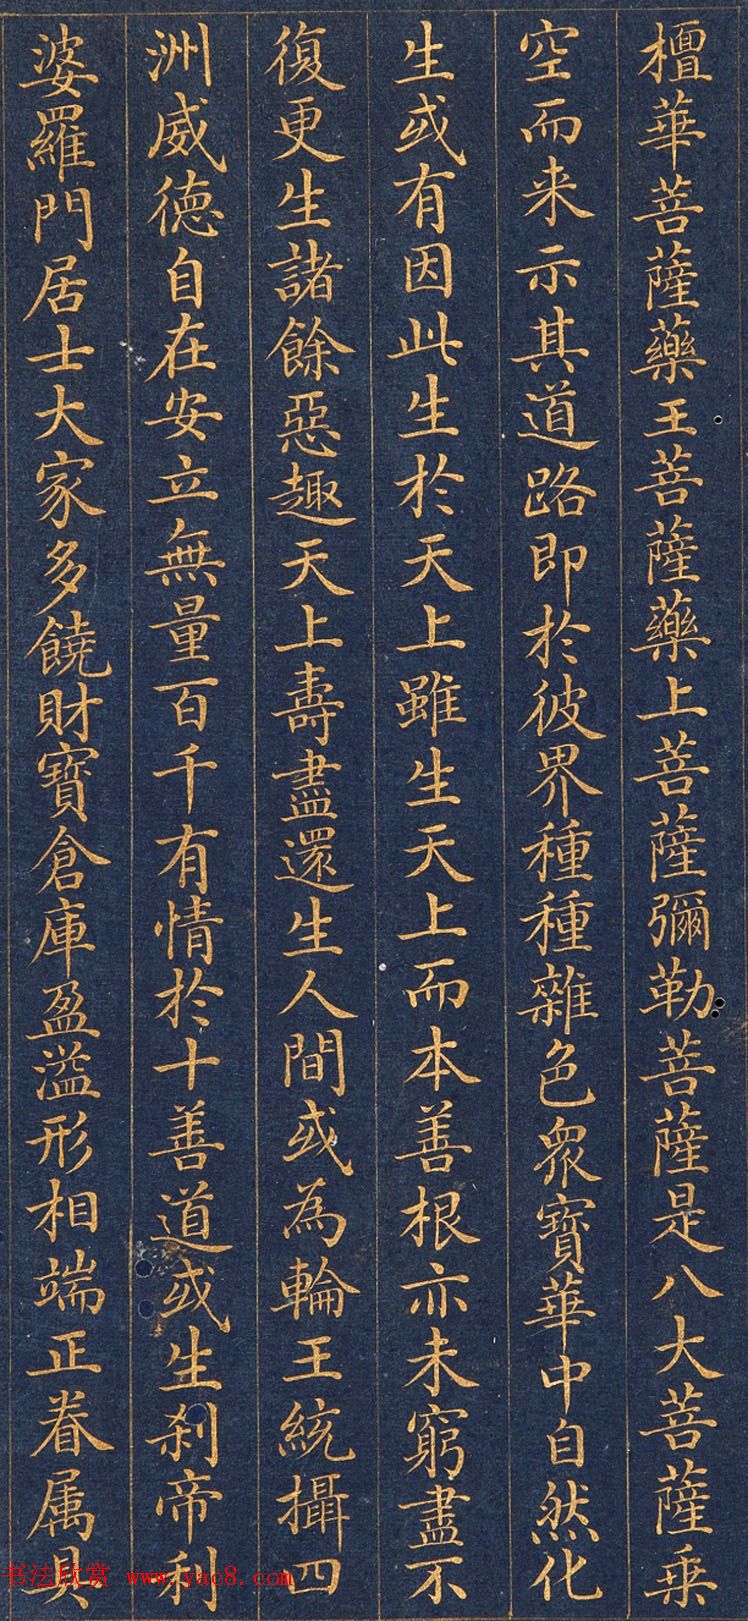 檀華菩薩藥王菩薩藥上菩薩彌勒菩薩是八大菩薩乗
空而来示其道路即於彼界種種雜色衆寶華中自然化
生或有因此生於天上雖生天上而本善根亦未窮盡不
復更生諸餘惡趣天上壽盡還生人間或為輪王統攝四
洲威徳自在安立無量百千有情於十善道或生刹帝利
婆羅門居士大家多饒財寶倉庫盈溢形相端正眷属具
书法欣赏 www.yac8.com